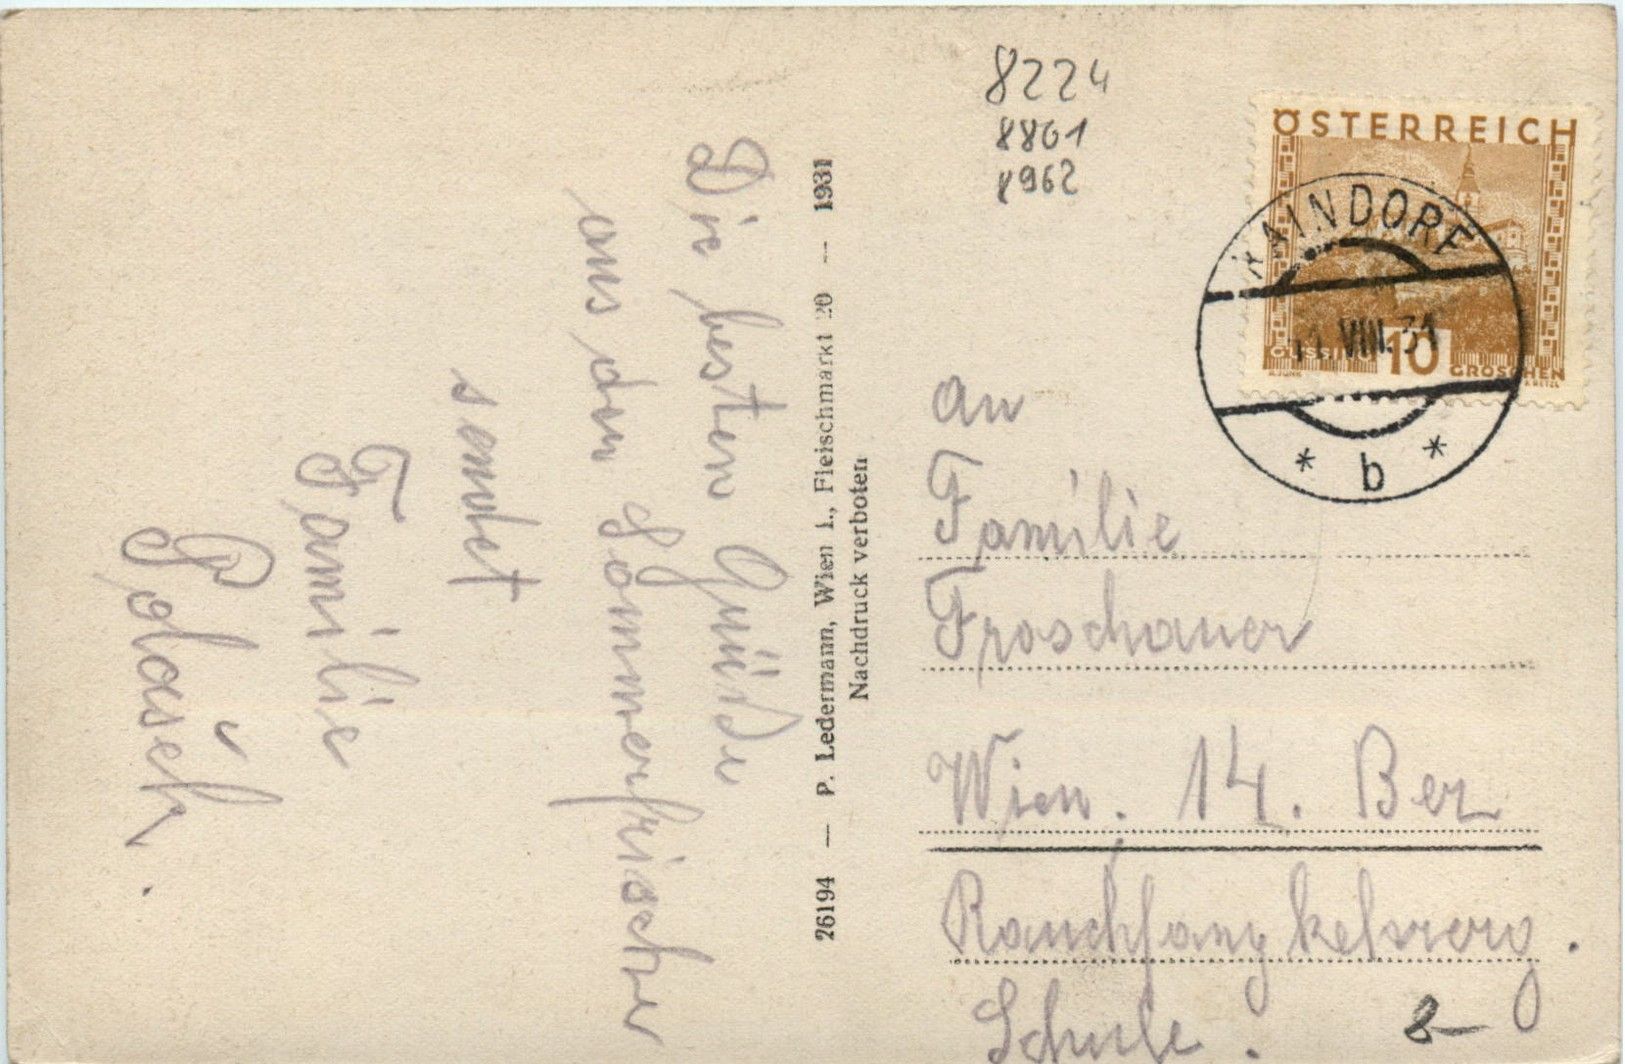 Die besten Grüße
aus der Sommerfrische
sendet
Familie
Polašek.
26194 — P. Ledermann, Wien I., Fleischmarkt 20 — 1931
Nachdruck verboten
8224
8801
8962
ÖSTERREICH
GÜSSING 10 GROSCHEN
KAINDORF
11.VIII.31
* b *
An
Familie
Froschauer
Wien. 14. Bez
Rauchfangkehrerg.
Schule.
8–